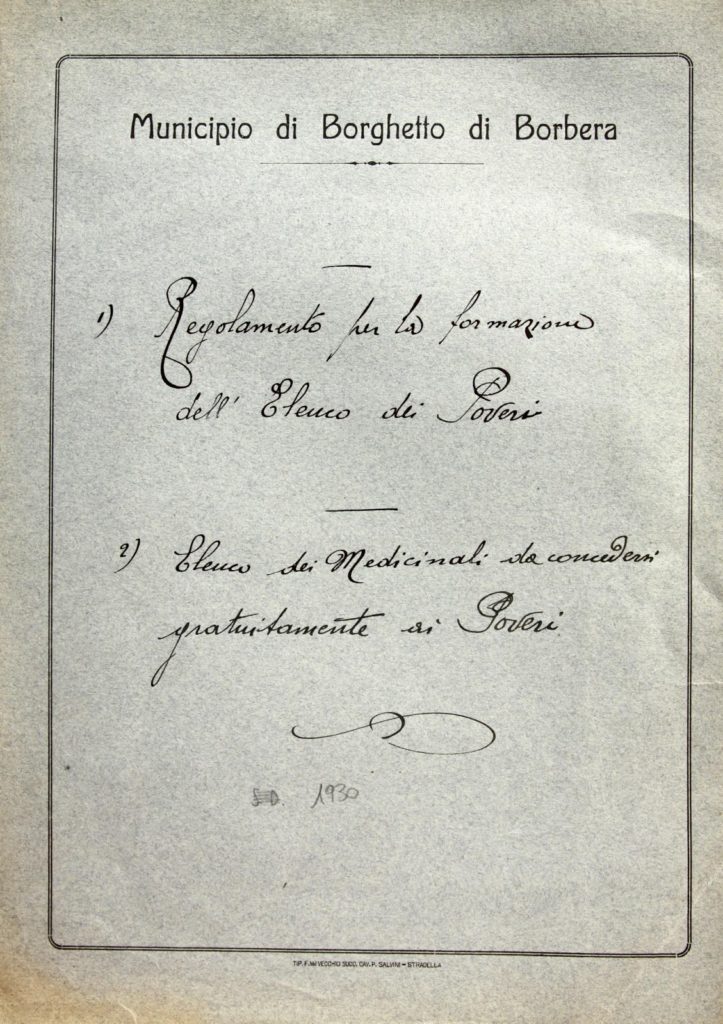 Municipio di Borghetto di Borbera
1) Regolamento per la formazione
dell' Elenco dei Poveri
2) Elenco dei Medicinali da concedersi
gratuitamente ai Poveri
1930
SUCC. CAV. P. SALVINI - STRADELLA